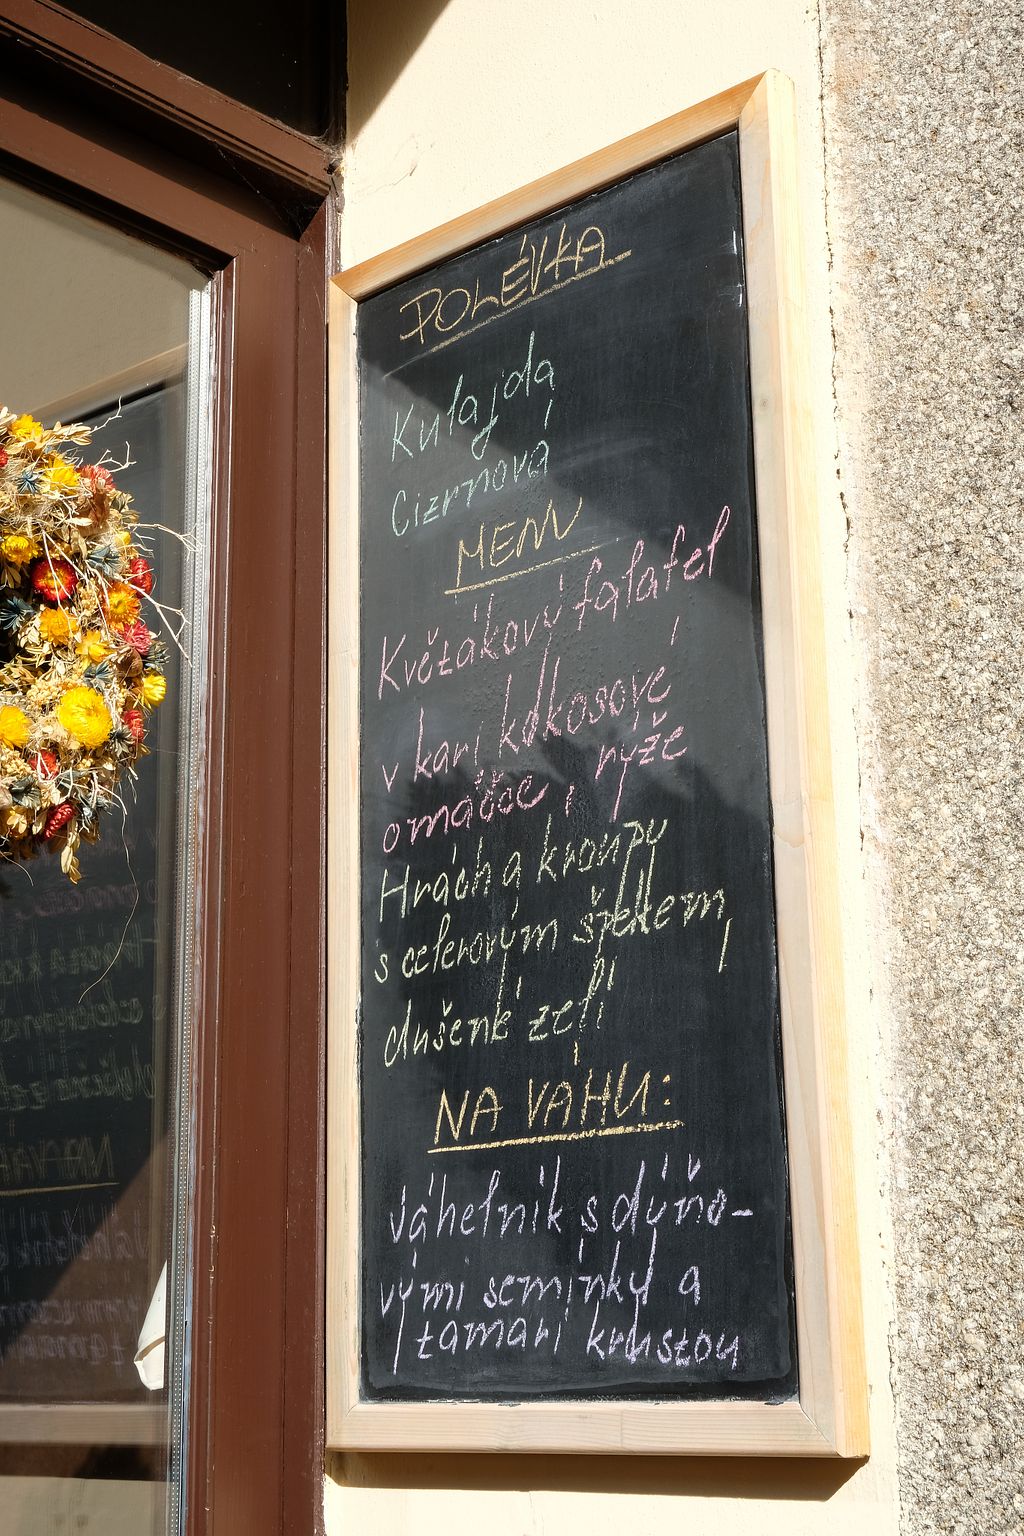 POLÉVKA
Kulajda
Cizrnová
MENU
Květákový falafel
v kari kokosové
omáčce, rýže
Hrách a kroupy
s celerovým špekem,
dušené zelí
NA VÁHU:
Jáhelník s dýňo-
vými semínky a
tamari krustou